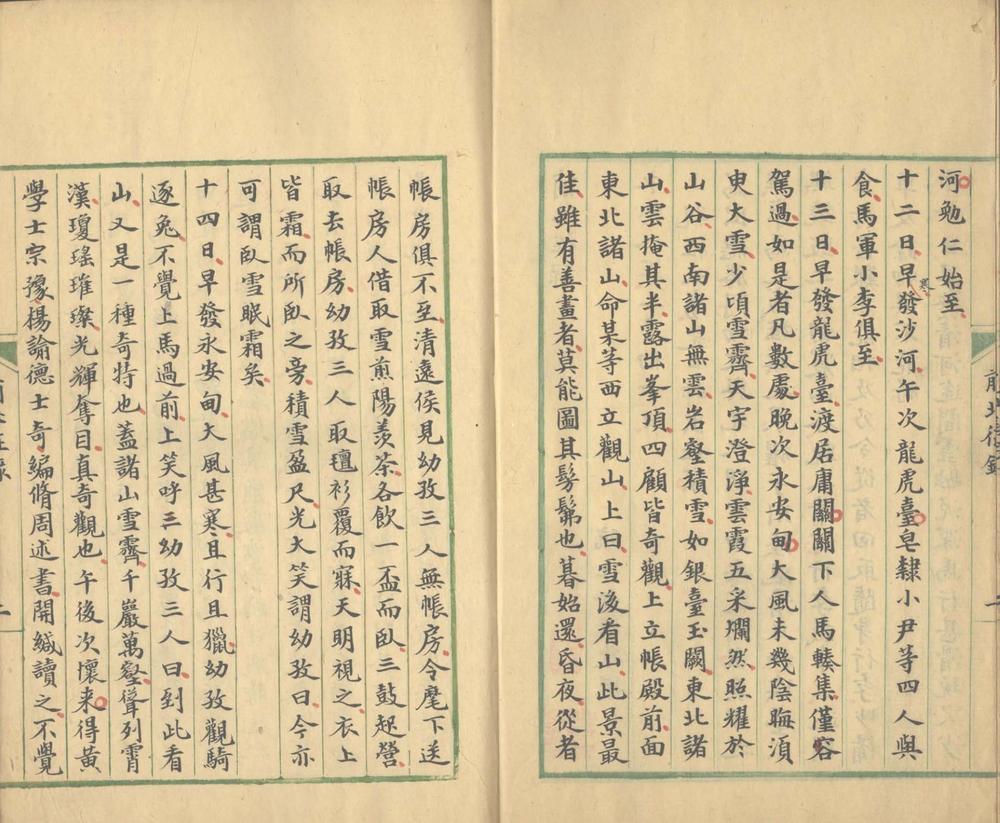 河勉仁始至
十二日早寒發沙河午次龍虎臺皂隸小尹等四人與
食馬軍小李俱至
十三日早發龍虎臺渡居庸關關下人馬輳集僅容
駕過如是者凡數處晚次永安甸大風未幾陰晦須
臾大雪少頃雪霽天宇澄淨雲霞五采爛然照耀於
山谷西南諸山無雲岩壑積雪如銀臺玉闕東北諸
山雲掩其半露出峯頂四顧皆奇觀上立帳殿前面
東北諸山命某等西立觀山上曰雪後看山此景最
佳雖有善畫者莫能圖其髣髴也暮始還昏夜從者
前北征錄
二
帳房俱不至清遠侯見幼孜三人無帳房令麾下送
帳房人借取雪煎陽羨茶各飲一盃而臥三鼓起營
取去帳房幼孜三人取氊衫覆而寐天明視之衣上
皆霜而所臥之旁積雪盈尺光大笑謂幼孜曰今亦
可謂臥雪眠霜矣
十四日早發永安甸大風甚寒且行且獵幼孜觀騎
逐兔不覺上馬過前上笑呼三幼孜三人曰到此看
山又是一種奇特也蓋諸山雪霽千巖萬壑聳列霄
漢瓊瑤璀璨光輝奪目真奇觀也午後次懷來得黃
學士宗豫楊諭德士奇編脩周述書開緘讀之不覺